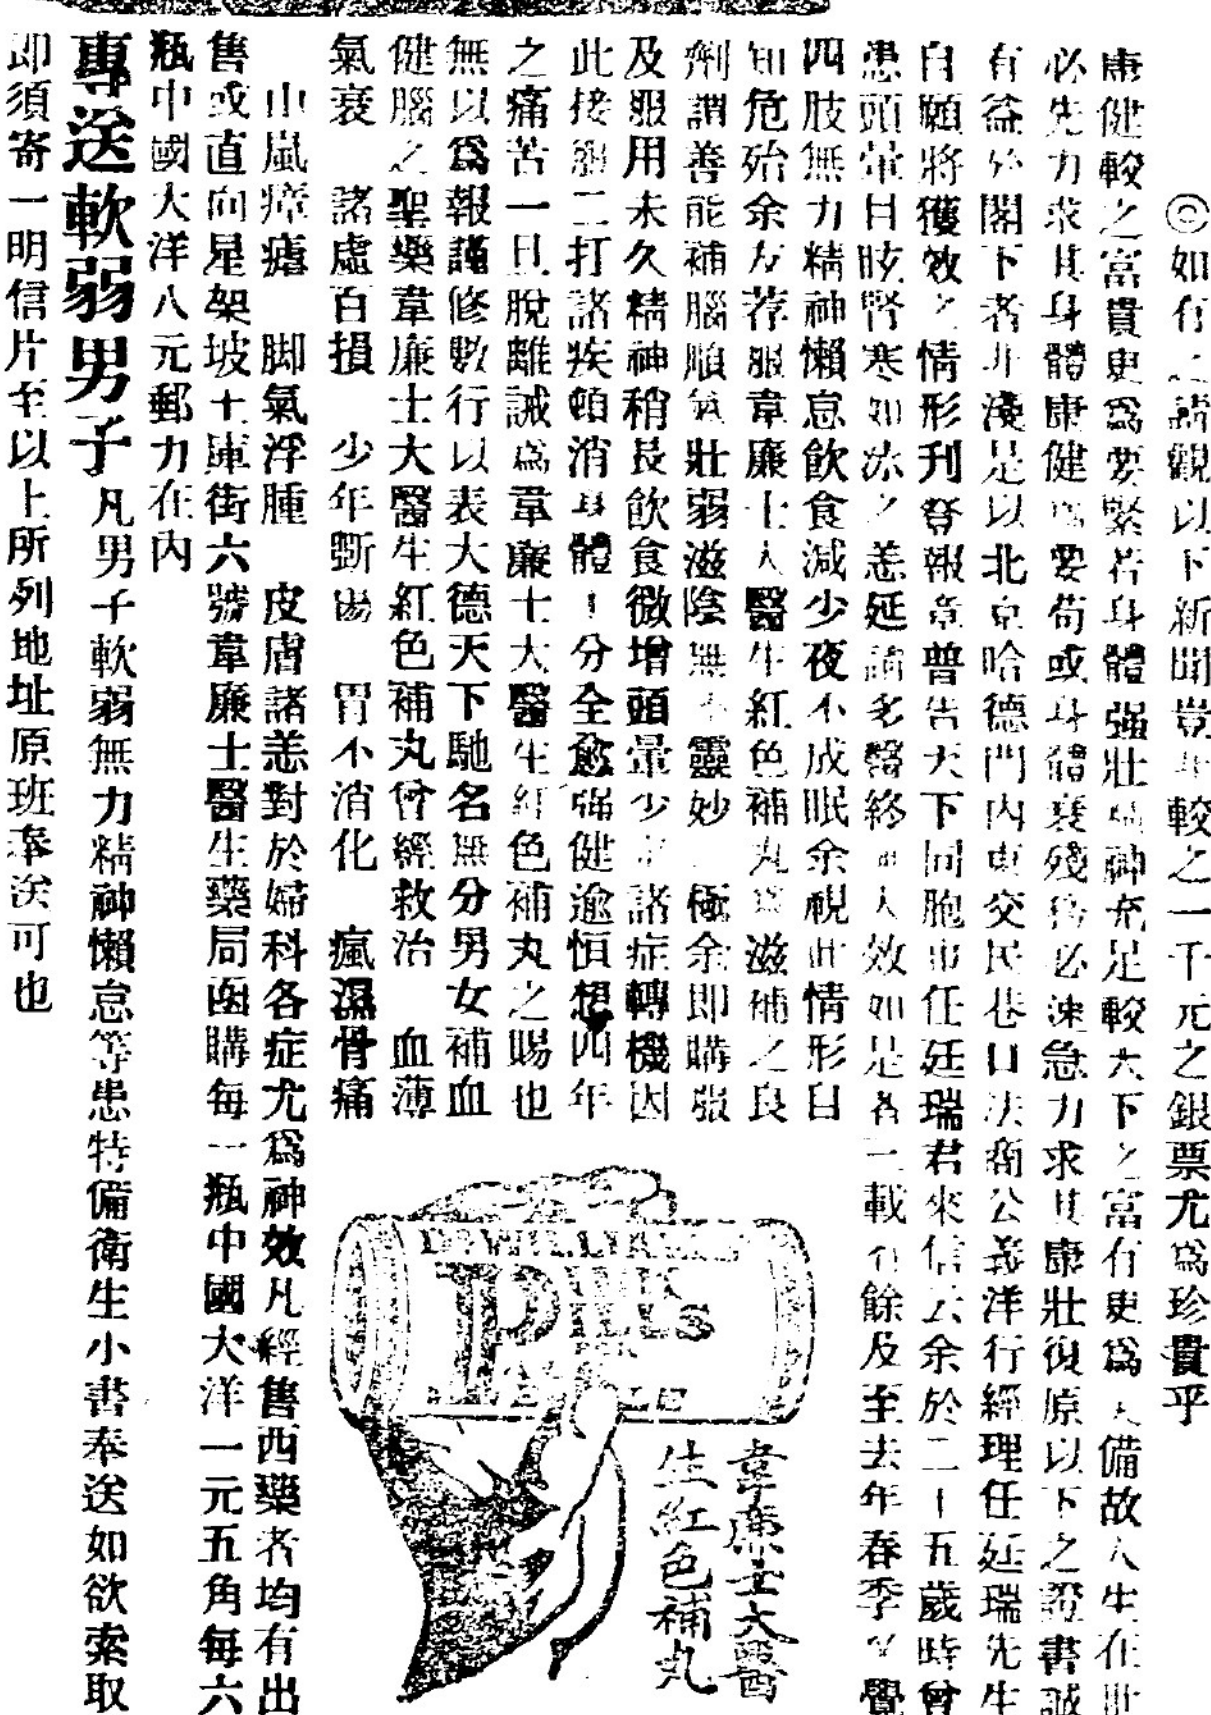 ◎如有之請觀以下新聞豈非較之一千元之銀票尤爲珍貴乎
康健較之富貴更爲要緊若身體强壯精神充足較天下之富有更爲大備故人生在世
必先力求其身體康健爲要苟或身體衰殘務必速急力求其康壯復原以下之證書誠
有益於閣下者非淺是以北京哈德門內東交民巷口法商公義洋行經理任廷瑞先生
自願將獲效之情形刊登報章普告天下同胞也任廷瑞君來信云余於二十五歲時曾
患頭暈目眩腎寒如冰之恙延請多醫終無人效如是者二載有餘及至去年春季又覺
四肢無力精神懶怠飲食減少夜不成眠余視此情形日
知危殆余友荐服韋廉士大醫生紅色補丸爲滋補之良
劑謂善能補腦順氣壯弱滋陰無不靈妙 極余即購數
及服用未久精神稍長飲食微增頭暈少 諸症轉機因
此接服二打諸疾頓消身體十分全愈强健逾恒想四年
之痛苦一旦脫離誠爲韋廉士大醫生紅色補丸之賜也
無以爲報謹修數行以表大德天下馳名無分男女補血
健腦之聖藥韋廉士大醫生紅色補丸曾經救治 血薄
氣衰 諸虛百損 少年斲傷 胃不消化 瘋濕骨痛
山嵐瘴瘧 脚氣浮腫 皮膚諸恙對於婦科各症尤爲神效凡經售西藥者均有出
售或直向星架坡十庫街六號韋廉士醫生藥局函購每一瓶中國大洋一元五角每六
瓶中國大洋八元郵力在內
專送軟弱男子凡男子軟弱無力精神懶怠等患特備衛生小書奉送如欲索取
即須寄一明信片至以上所列地址原班奉送可也
PILLS
韋廉士大醫
生紅色補丸